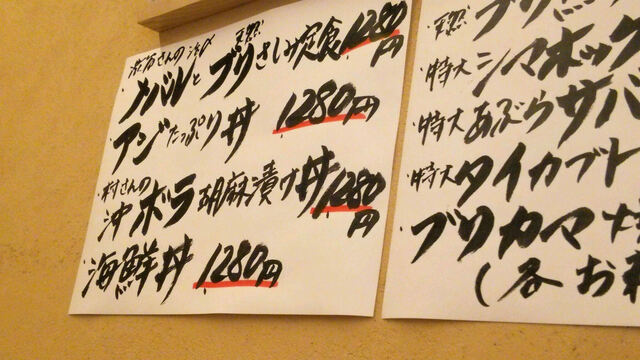 メバルと 天然ブリさしみ定食 1280円
アジたっぷり丼 1280円
村さんの
沖ボラ胡麻漬け丼 1280円
海鮮丼 1280円
天然 ブリ
特大 シマホッケ
特大 あぶらサバ
特大 タイカブト
ブリカマ
(各お